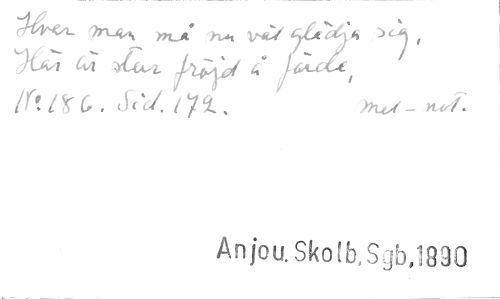 Hver man må nu väl glädja sig,
Här är stor fröjd å färde,
No. 186. Sid. 172. mel-not.
Anjou. Skolb, Sgb, 1890